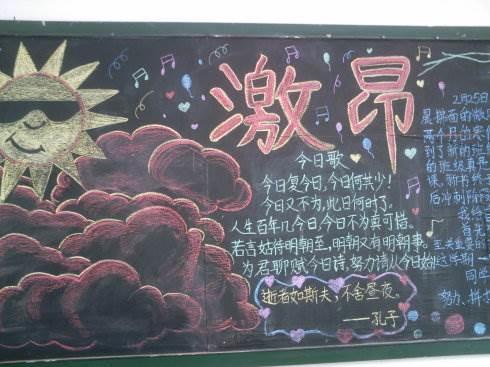 激昂
今日歌
今日复今日,今日何其少!
今日又不为,此日何时了。
人生百年几今日,今日不为真可惜。
若言姑待明朝至,明朝又有明朝事。
为君聊赋今日诗,努力请从今日始。
逝者如斯夫,不舍昼夜。
——孔子
2月25日
到了新的班
的班级真是
课,新书
后冲刺
努力、拼